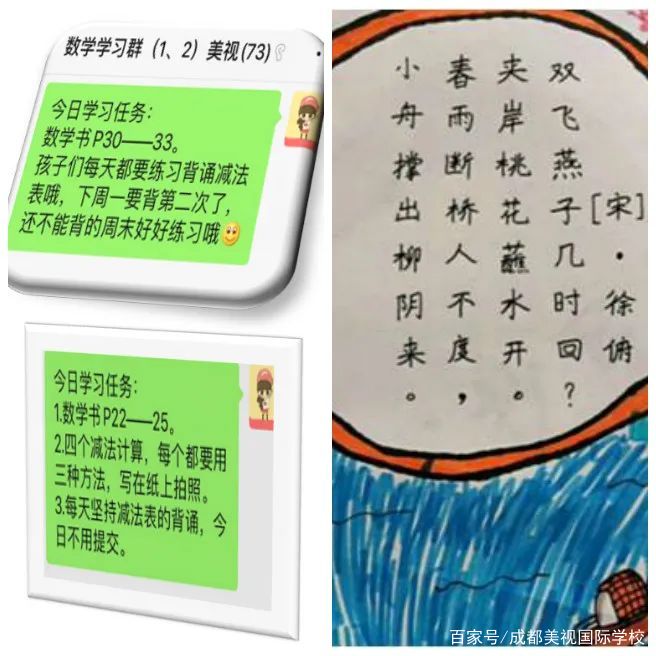 数学学习群（1、2）美视(73)
今日学习任务：
数学书P30——33。
孩子们每天都要练习背诵减法
表哦，下周一要背第二次了，
还不能背的周末好好练习哦
今日学习任务：
1.数学书P22——25。
2.四个减法计算，每个都要用
三种方法，写在纸上拍照。
3.每天坚持减法表的背诵，今
日不用提交。
[宋]·徐俯
双飞燕子几时回？
夹岸桃花蘸水开。
春雨断桥人不度，
小舟撑出柳阴来。
百家号/成都美视国际学校